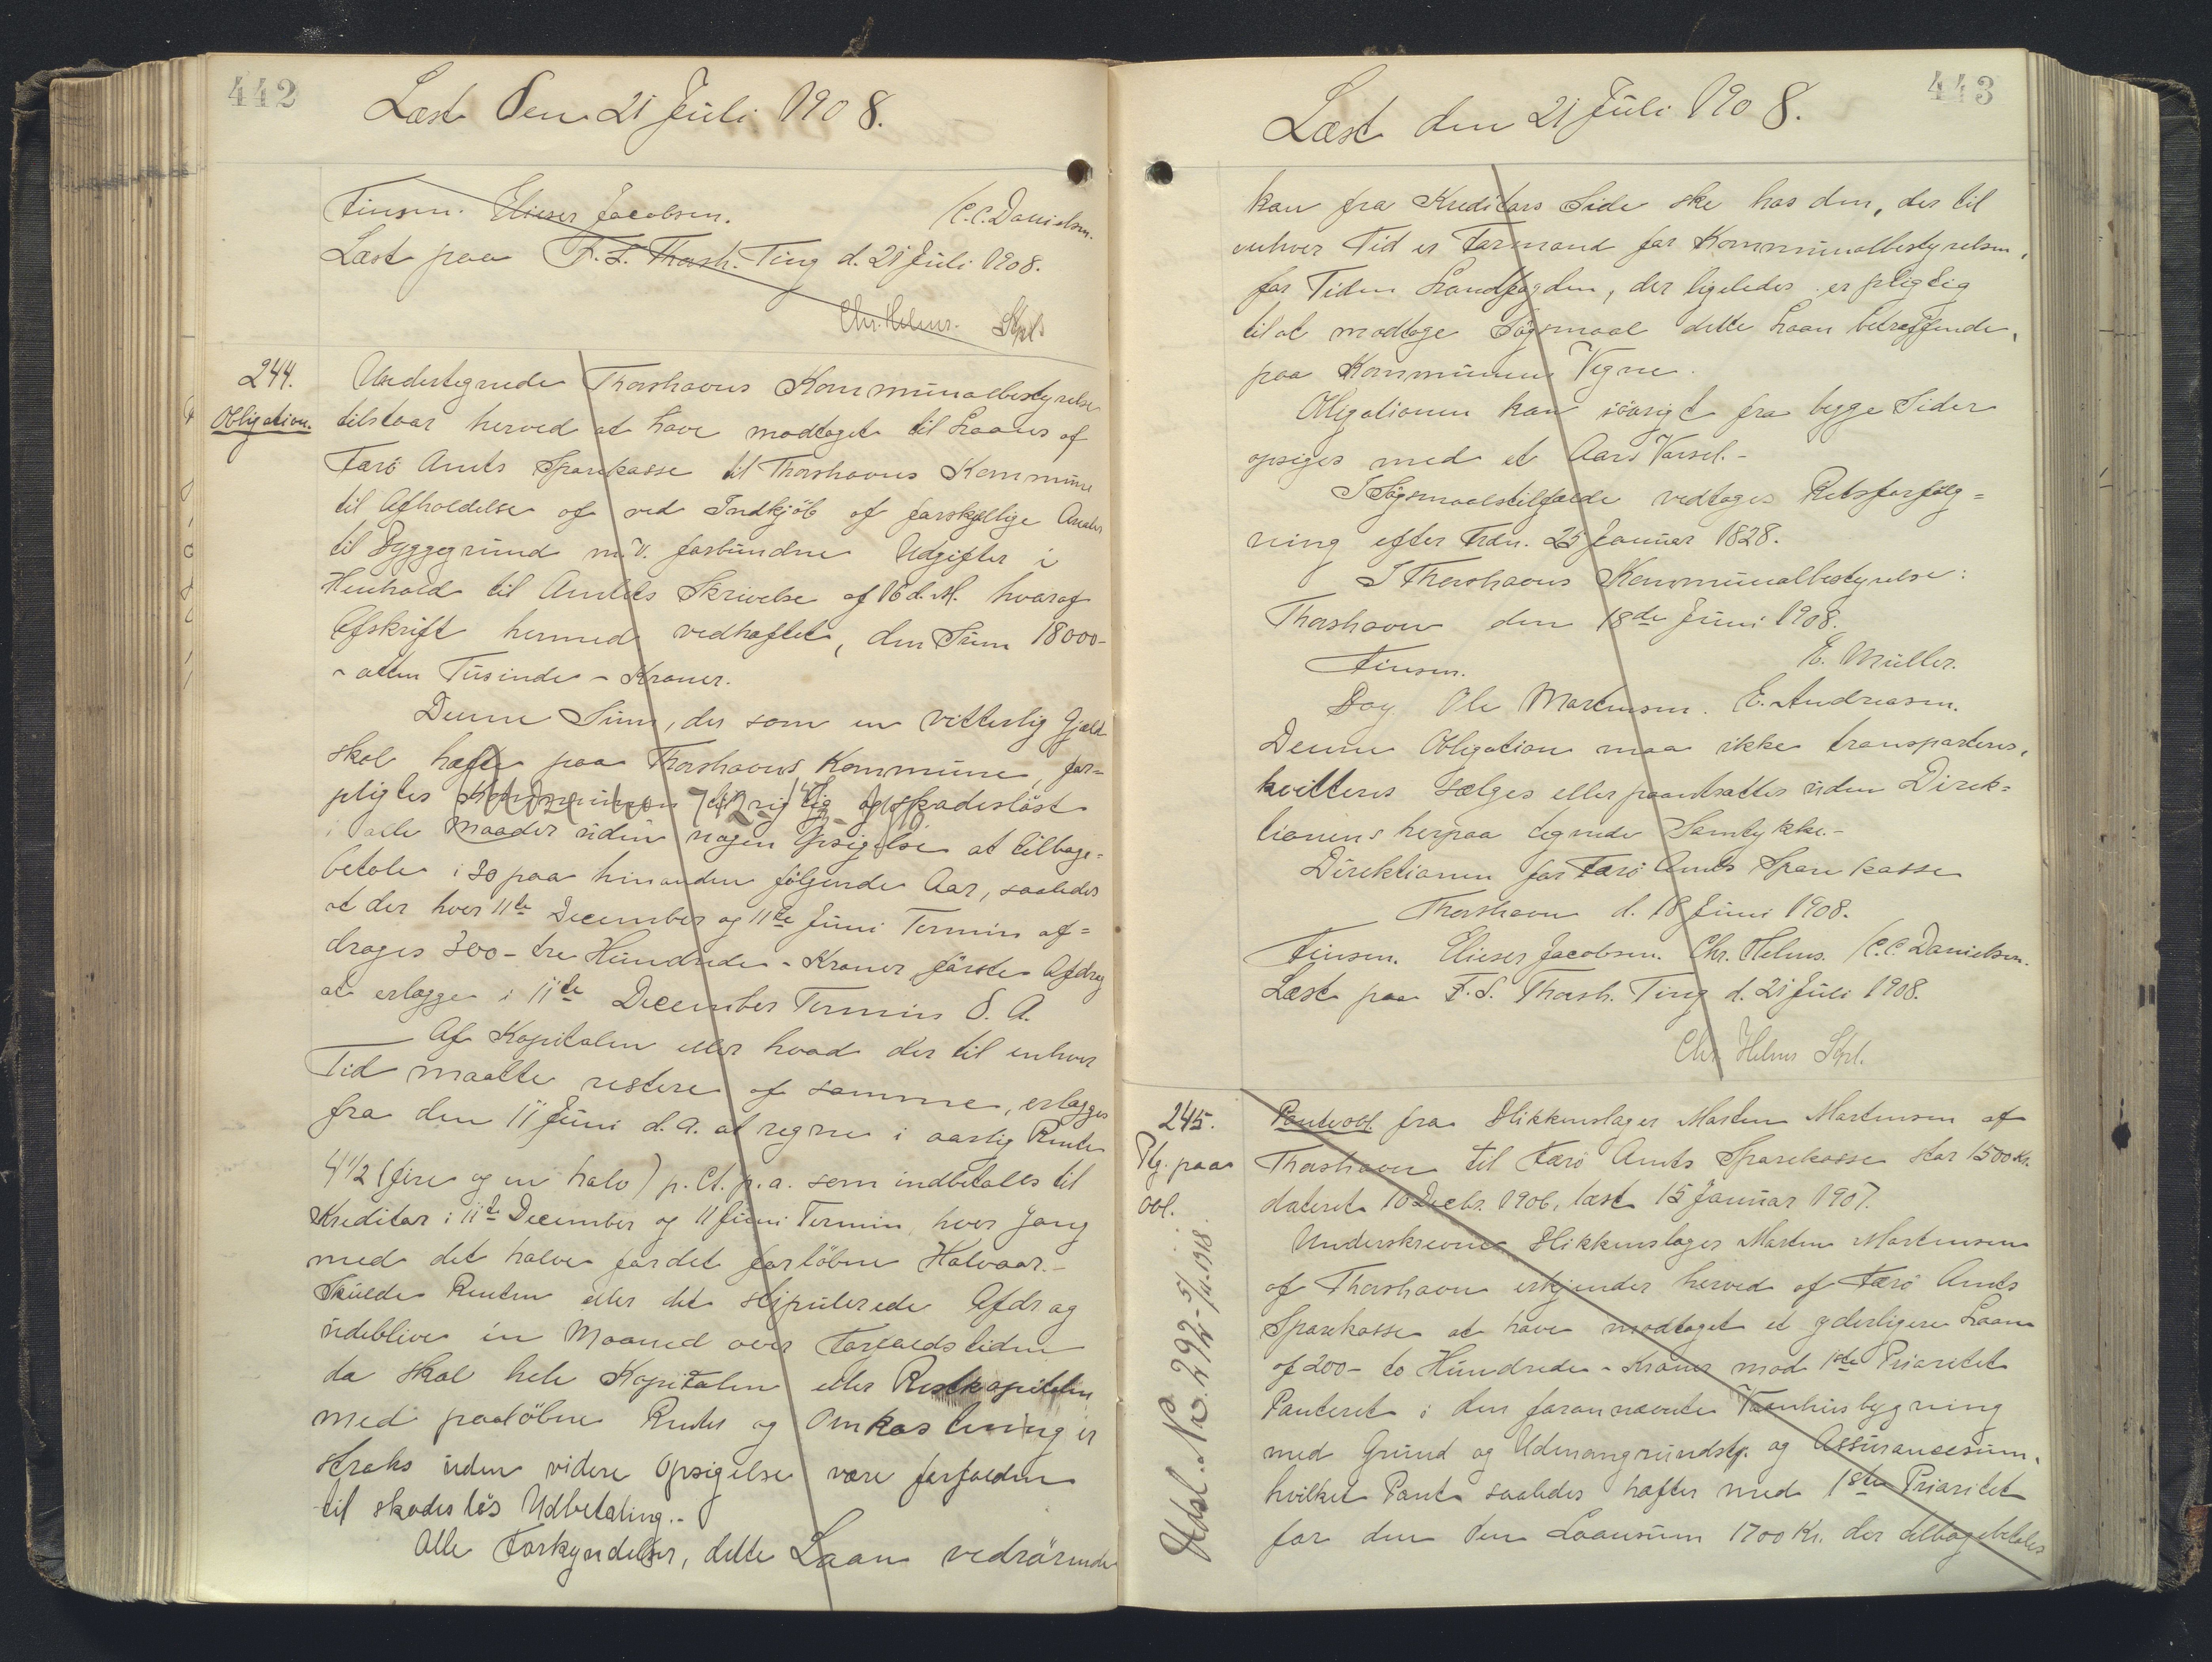 442
Læst den 21 Juli 1908.
Finsen. Elieser Jacobsen. C.C. Danielsen.
Læst paa F. S. Thorsh. Ting d. 21 Juli 1908.
Chr. Helms. Skpl.
244.
Obligation.
Undertegnede Thorshavns Kommunalbestyrelse
tilstaar herved at have modtaget til Laans af
Færö Amts Sparekasse til Thorshavns Kommune
til Afholdelse af ved Indkjöb af forskjellige Arealer
til Byggegrund m.V. forbundne Udgifter i
Henhold til Amtets Skrivelse af 16 d. M. hvoraf
Afskrift hermed vedhæftet, den Sum 18000-
- atten Tusinde - Kroner.
Denne Sum, der som en vitterlig Gjæld
skal hæfte paa Thorshavns Kommune, for=
pligtes Kommunen skadeslöst
i alle Maader uden nogen Opsigelse at tilbage=
betale i 30 paa hinanden følgende Aar, saaledes
at der hver 11te December og 11te Juni Termin af=
drages 300 - tre Hundrede - Kroner, første Afdrag
at erlægge i 11te December Termin d. A.
Af Kapitalen eller hvad der til enhver
Tid maatte restere af samme, erlægges
fra den 11 Juni d. A. at regne i aarlig Rente
4 1/2 (fire og en halv) p. Ct. p. a. som indbetales til
Kreditor i 11te December og 11 Juni Termin hver Gang
med det halve for det forløbne Halvaar.-
Skulde Renten eller det stipulerede Afdrag
udeblive en Maaned over Forfaldstiden
da skal hele Kapitalen eller Restkapitalen
med paaløbne Renter og Omkostninger
straks uden videre Opsigelse være forfalden
til skadesløs Udbetaling.-
Alle Forkyndelser, dette Laan vedrørende
443
Læst den 21 Juli 1908.
kan fra Kreditors Side ske hos den, der til
enhver Tid er Formand for Kommunalbestyrelsen,
for Tiden Landfogden, der ligeledes er pligtig
til at modtage Søgsmaal dette Laan betræffende,
paa Kommunens Vegne.
Obligationen kan iøvrigt fra begge Sider
opsiges med et Aars Varsel.-
I Søgsmaalstilfælde vedtages Retsforfølg=
ning efter Frdn. 25 Januar 1828.
I Thorshavns Kommunalbestyrelse:
Thorshavn den 18de Juni 1908.
Finsen. E. Müller.
Ole Mortensen. E. Andreasen.
Denne Obligation maa ikke transporteres,
kvitteres sælges eller pantsættes uden Direk=
tionens herpaa tegnede Samtykke.-
Direktionen for Færö Amts Sparekasse
Thorshavn d. 18 Juni 1908.
Finsen. Elieser Jacobsen. Chr. Helms. C.C. Danielsen.
Læst paa F. S. Thorsh. Ting d. 21 Juli 1908.
Chr. Helms Skpl.
245.
Ptg. paa
Obl.
Udsl. No. 292 - 5/11-1918.
Panteobl. fra Blikkenslager Morten Mortensen af
Thorshavn til Færö Amts Sparekasse stor 1500 Kr.
dateret 10 Decbr. 1906, læst 15 Januar 1907.
Underskrevne Blikkenslager Morten Mortensen
af Thorshavn erkjender herved af Færö Amts
Sparekasse at have modtaget et yderligere Laan
af 200 - to Hundrede - Kroner mod 1ste Prioritet
Panteret i den forannævnte Vaanhusbygning
med Grund og Udenomgrundstk. og Assurancesum,
hvilket Pant saaledes hæfter med 1ste Prioritet
for den den Laanssum 1700 Kr. der tilbagebetales